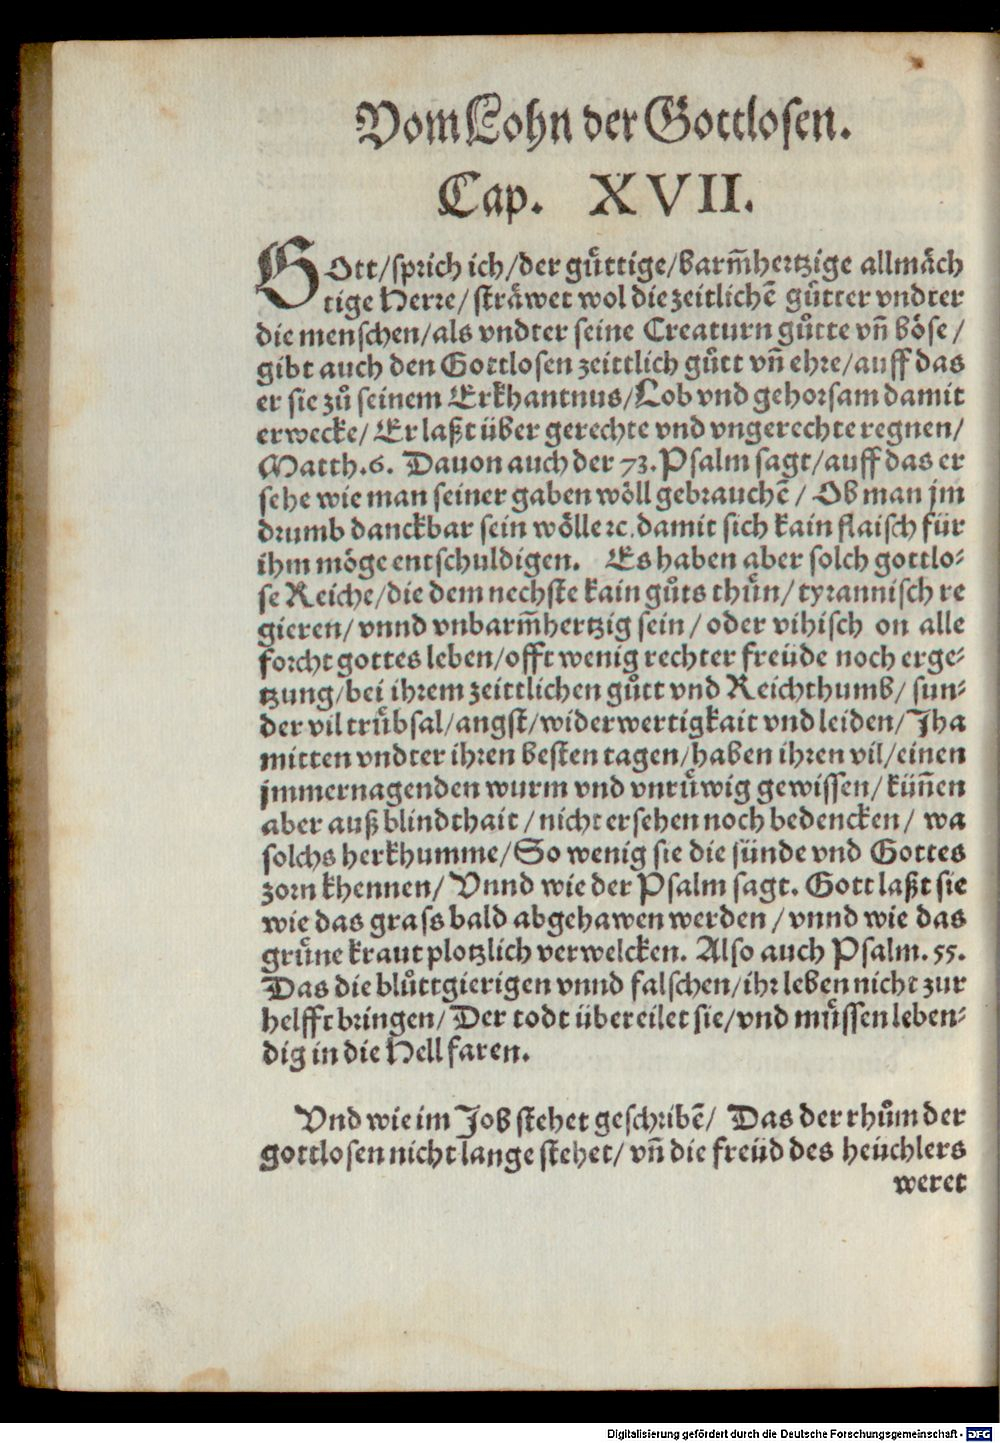 Vom Lohn der Gottlosen.
Cap. XVII.
GOtt/sprich ich/der guͤttige/barm̃hertzige allmaͤch
tige Herre/ straͤwet wol die zeitlichẽ guͤtter vndter
die menschen/als vndter seine Creaturn guͦtte vñ boͤse/
gibt auch den Gottlosen zeittlich guͦtt vñ ehre/auff das
er sie zuͦ seinem Erkhantnus/Lob vnd gehorsam damit
erwecke/ Er laßt über gerechte vnd vngerechte regnen/
Matth.6. Dauon auch der 73.Psalm sagt/auff das er
sehe wie man seiner gaben woͤll gebrauchẽ/ Ob man jm
drumb danckbar sein woͤlle ꝛc. damit sich kain flaisch für
ihm moͤge entschuldigen. Es haben aber solch gottlo-
se Reiche/die dem nechste kain guͦts thuͦn/ tyrannisch re
gieren/ vnnd vnbarm̃hertzig sein/ oder vihisch on alle
forcht gottes leben/offt wenig rechter freüde noch erge-
tzung/bei ihrem zeittlichen guͦtt vnd Reichthumb/ sun-
der vil truͤbsal/angst/widerwertigkait vnd leiden/Jha
mitten vndter ihren besten tagen/haben ihren vil/einen
jmmernagenden wurm vnd vnruͤwig gewissen/ küñen
aber auß blindthait/ nicht ersehen noch bedencken/ wa
solchs herkhumme/So wenig sie die sünde vnd Gottes
zorn khennen/ Vnnd wie der Psalm sagt. Gott laßt sie
wie das grass bald abgehawen werden/ vnnd wie das
gruͤne kraut plotzlich verwelcken. Also auch Psalm.55.
Das die bluͦttgierigen vnnd falschen/ihr leben nicht zur
helfft bringen/ Der todt übereilet sie/vnd muͤssen leben-
dig in die Hell faren.
Vnd wie im Job stehet geschribẽ/ Das der rhuͦm der
gottlosen nicht lange stehet/ vñ die freüd des heüchlers
weret
Digitalisierung gefördert durch die Deutsche Forschungsgemeinschaft - DFG